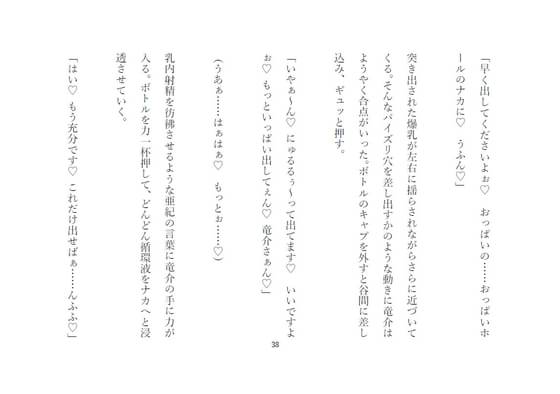 「早く出してくださいよぉ♡　おっぱいの……おっぱいホ
ールのナカに♡　うふん♡」
突き出された爆乳が左右に揺らされながらさらに近づいて
くる。そんなパイズリ穴を差し出すかのような動きに竜介は
ようやく合点がいった。ボトルのキャプを外すと谷間に差し
込み、ギュッと押す。
「いやぁ～ん♡ にゅるるぅ～って出てます♡　いいですよ
ぉ♡ もっといっぱい出してぇん♡ 竜介さぁん♡」
(うあぁ……はぁはぁ♡　もっとぉ……♡)
乳内射精を彷彿させるような亜紀の言葉に竜介の手に力が
入る。ボトルを力一杯押して、どんどん循環液をナカへと浸
透させていく。
「はい♡ もう充分です♡ これだけ出せばぁ……んふふ♡」
38